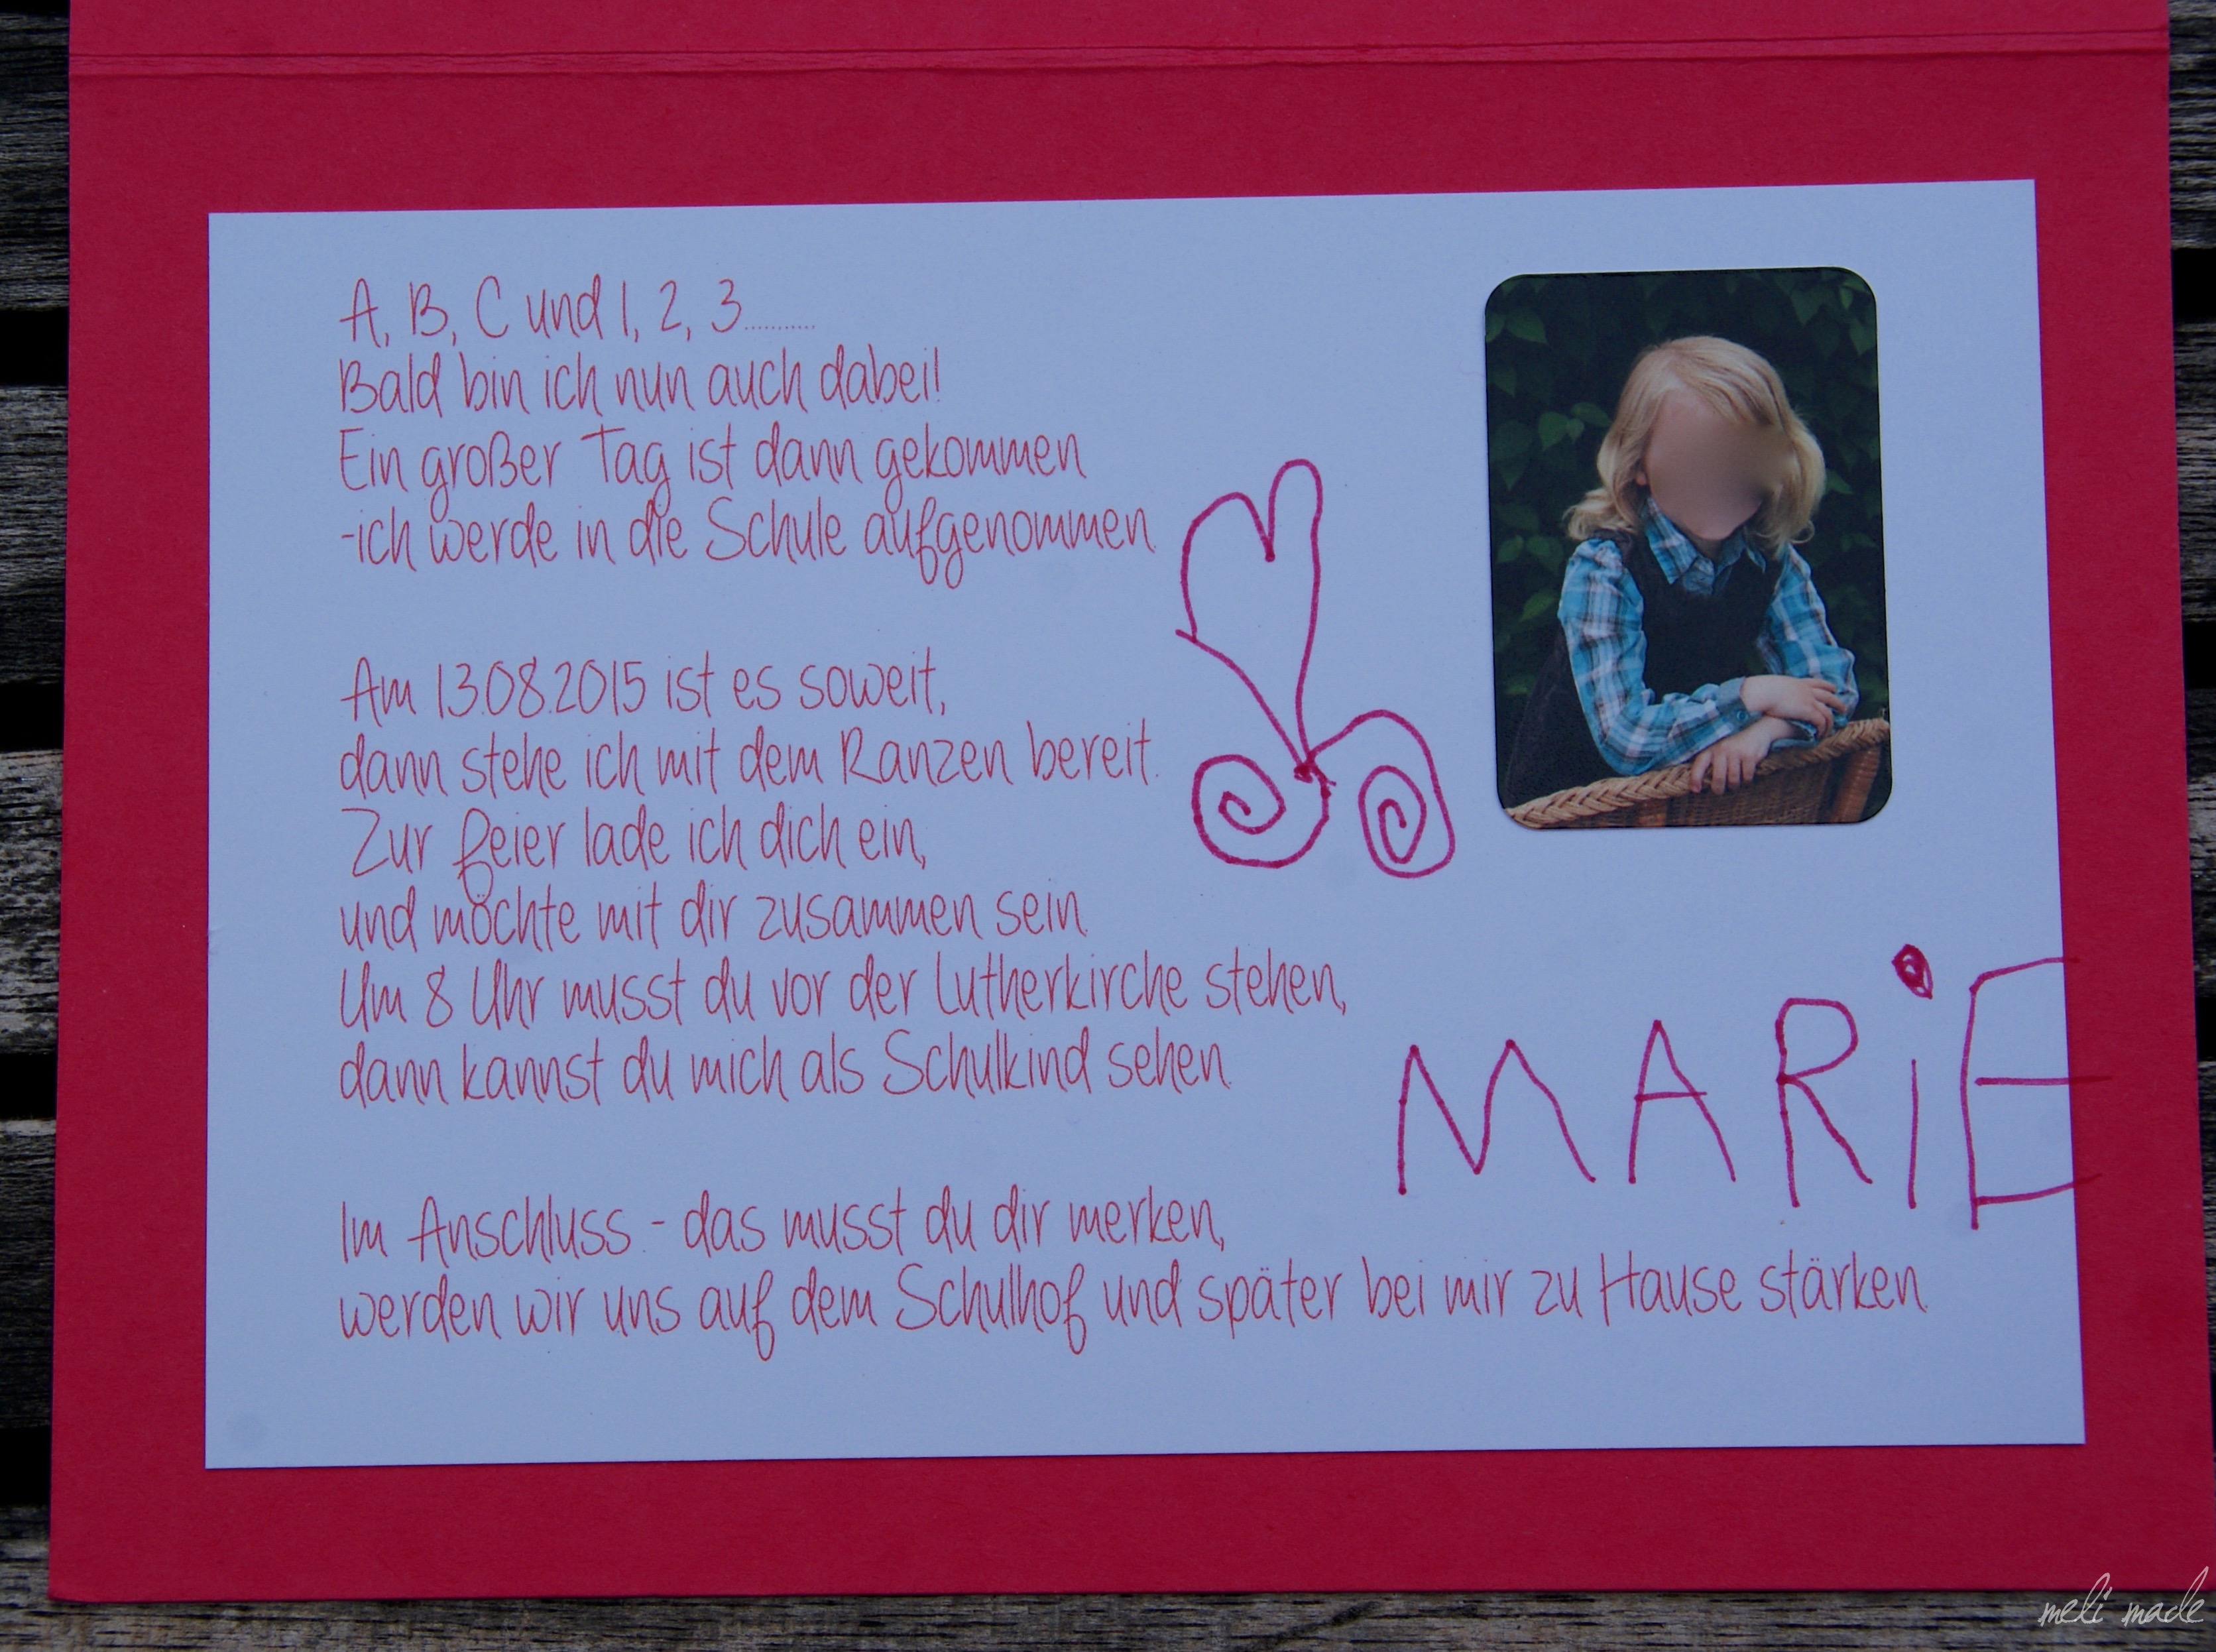 A, B, C und 1, 2, 3...........
Bald bin ich nun auch dabei!
Ein großer Tag ist dann gekommen
-ich werde in die Schule aufgenommen.
Am 13.08.2015 ist es soweit,
dann stehe ich mit dem Ranzen bereit.
Zur Feier lade ich dich ein,
und möchte mit dir zusammen sein.
Um 8 Uhr musst du vor der Lutherkirche stehen,
dann kannst du mich als Schulkind sehen.
MARiE
Im Anschluss - das musst du dir merken,
werden wir uns auf dem Schulhof und später bei mir zu Hause stärken.
meli made